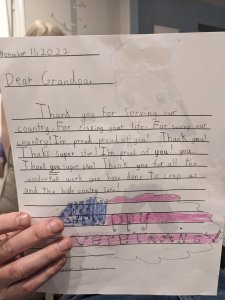 November 11, 2022
Dear Grandpa,
Thank you for serving our
country. For risking your life. For saving our
country! I'm proud proud of you! Thank you!
super star! I'm proud of you!
Thank you super star! Thank you for all the
wonderful work you have done to
and the hole contry safe!
VETERANS